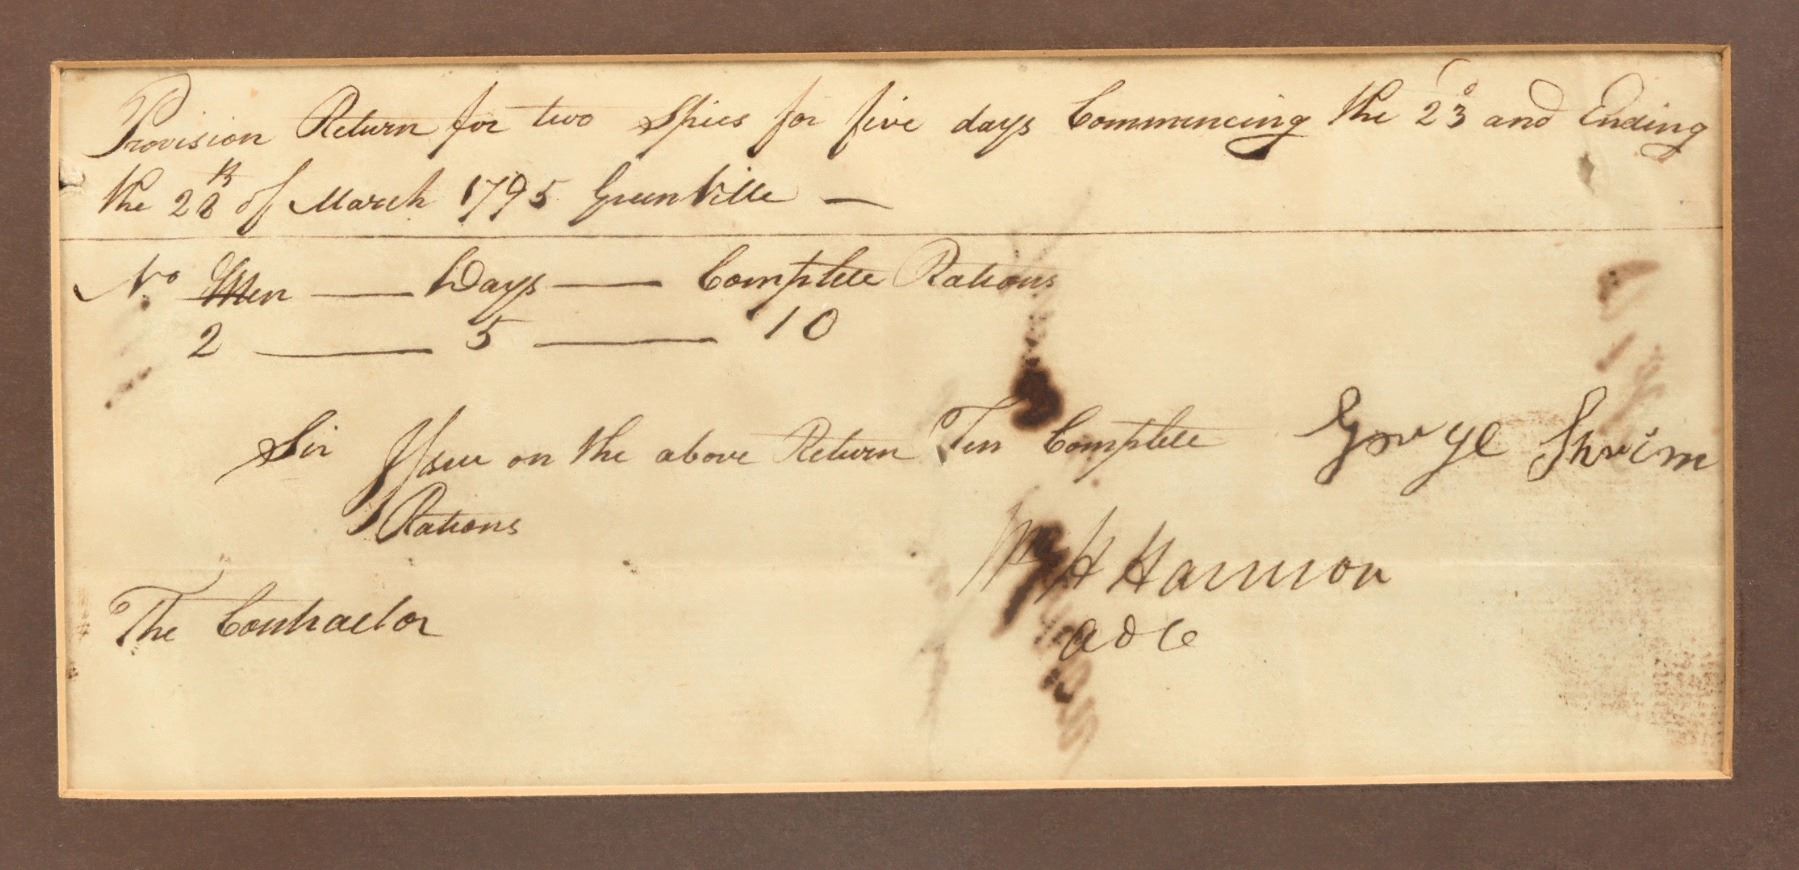 Provision Return for two Spies for five days Commencing the 23d and Ending
the 28th of March 1795 GreenVille —
No Men — Days — Complete Rations
2 — 5 — 10
Sir Issue on the above Return Ten Complete
Rations
George Shrim
Wm H Harrison
ADC
The Contractor